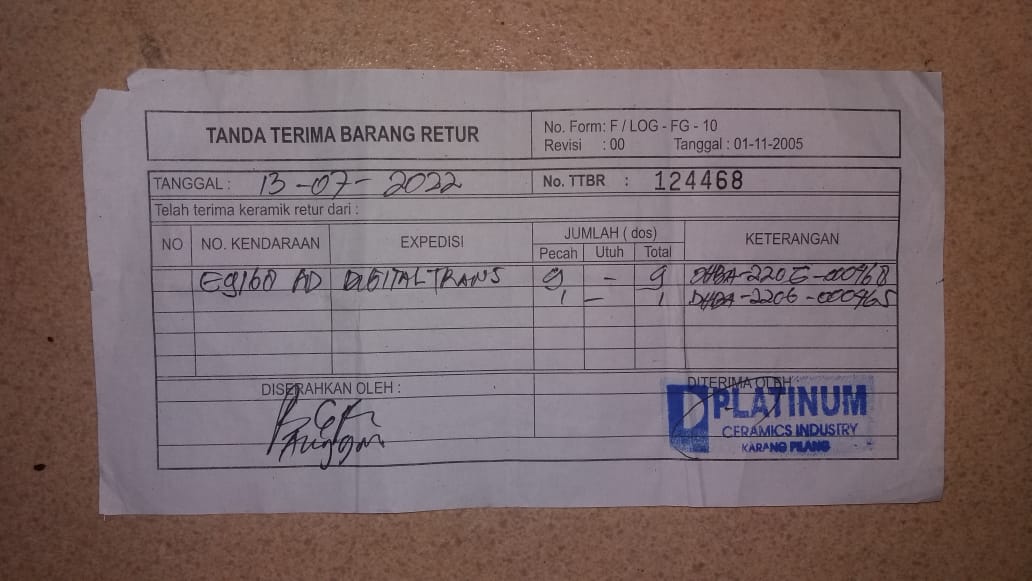 TANDA TERIMA BARANG RETUR
No. Form: F / LOG - FG - 10
Revisi : 00 Tanggal : 01-11-2005
TANGGAL : 13-07-2022 No. TTBR : 124468
Telah terima keramik retur dari :
NO NO. KENDARAAN EXPEDISI JUMLAH ( dos) KETERANGAN
Pecah Utuh Total
DIGITAL TRANS 9 - 9 DHBA-2206-000968
1 - 1 DHBA-2206-000965
DISERAHKAN OLEH : DITERIMA OLEH
Anggori
PLATINUM
CERAMICS INDUSTRY
KARANG PILANG